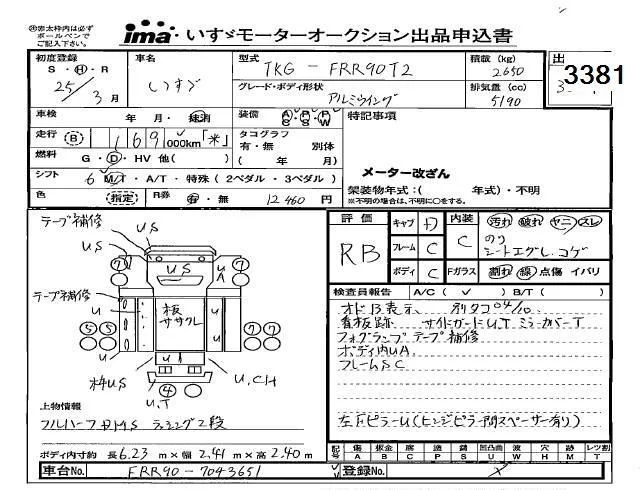 ※赤太枠内は必ず
ボールペンで
ご記入下さい。
ima いすゞモーターオークション出品申込書
初度登録 車名 型式 TKG - FRR90T2 積載 (kg) 2650 出
S・H・R 25年 3月 いすゞ グレード・ボディ形状 アルミウイング 排気量 (cc) 5190 3381
車検 年・月・抹消 装備 A/S P/S P/W 特記事項
走行 B 169,000km「米」 タコグラフ 有・無 別体
燃料 G・D・HV 他( ) ( 年 月)
シフト 6 M/T・A/T・特殊(2ペダル・3ペダル) メーター改ざん
色 (指定) R券 有・無 12460円 架装物年式:( 年式)・不明
※不明の場合は、不明に○をする。
テープ補修 US
評価 RB キャブ D 内装 C 汚れ 破れ ヤニ スレ
のり
シートエグレ、コゲ
フレーム C
ボディ C Fガラス 割れ 線 点傷 イバリ
US
⑦ ⑦ U A
テープ補修
U
板
ササクレ
⑤ ⑤ ⑦ ⑦
U U
US U,CH
④ U,T
検査員報告 A/C( ✓ ) B/T( )
オドB表示 別タコ04/10
看板跡 サイドガードU,T ミラーカバーT
フォグランプテープ補修
ボディ内UA
フレームSC
左Fピラーし(ヒンジピラー間スペーサー有り)
上物情報
フルハーフ ラッシング2段
ボディ内寸約 長6.23m×幅2.41m×高2.40m
記号 傷A 板金B 腐C 塗P 錆S 凹凸曲U 波W 穴H 跡M レツ割T
車台No. FRR90-7043651 登録No.